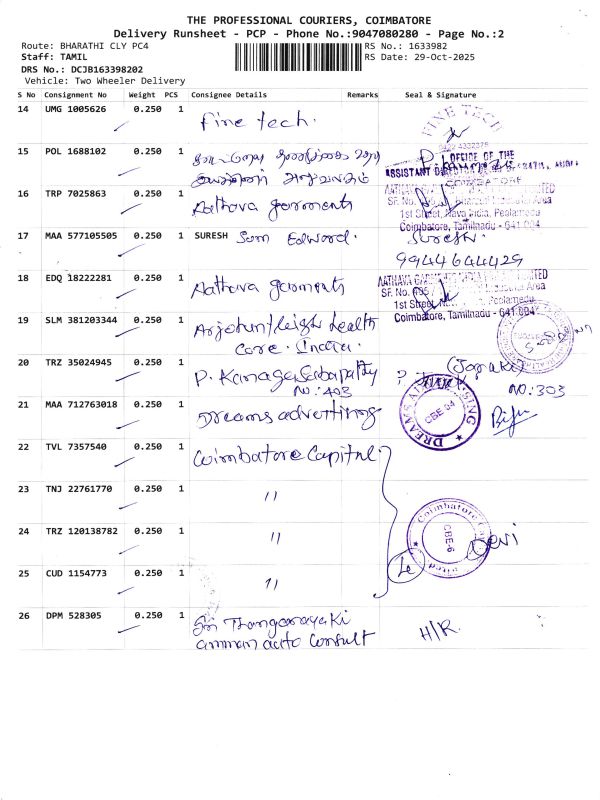 THE PROFESSIONAL COURIERS, COIMBATORE
Delivery Runsheet - PCP - Phone No.:9047080280 - Page No.:2
Route: BHARATHI CLY PC4 RS No.: 1633982
Staff: TAMIL RS Date: 29-Oct-2025
DRS No.: DCJB163398202
Vehicle: Two Wheeler Delivery
S No Consignment No Weight PCS Consignee Details Remarks Seal & Signature
14 UMG 1005626 0.250 1 Fine tech. FINE TECH
15 POL 1688102 0.250 1 OFFICE OF THE
அலுவலகம் ASSISTANT COIMBATORE
16 TRP 7025863 0.250 1 Aathava garments
SF. No. Area
1st Street, Nava India, Peelamedu
Coimbatore, Tamilnadu - 641 004
17 MAA 577105505 0.250 1 SURESH Sam Edward. Suresh.
9944644429
18 EDQ 18222281 0.250 1 Aathava garments AATHAVA
SF. No. Area
1st Street, Peelamedu
Coimbatore, Tamilnadu - 641 004
19 SLM 381203344 0.250 1 health
Care. India.
20 TRZ 35024945 0.250 1 P. Kanaga Sabapathy (Janaki)
NO: 403 NO: 303
21 MAA 712763018 0.250 1 Dreams advertting DREAMS CBE 04
22 TVL 7357540 0.250 1 Coimbatore Capital
23 TNJ 22761770 0.250 1 "
24 TRZ 120138782 0.250 1 " Coimbatore CBE-6 Devi
25 CUD 1154773 0.250 1 "
26 DPM 528305 0.250 1 Sri Thanganayaki H/R.
amman auto Consult